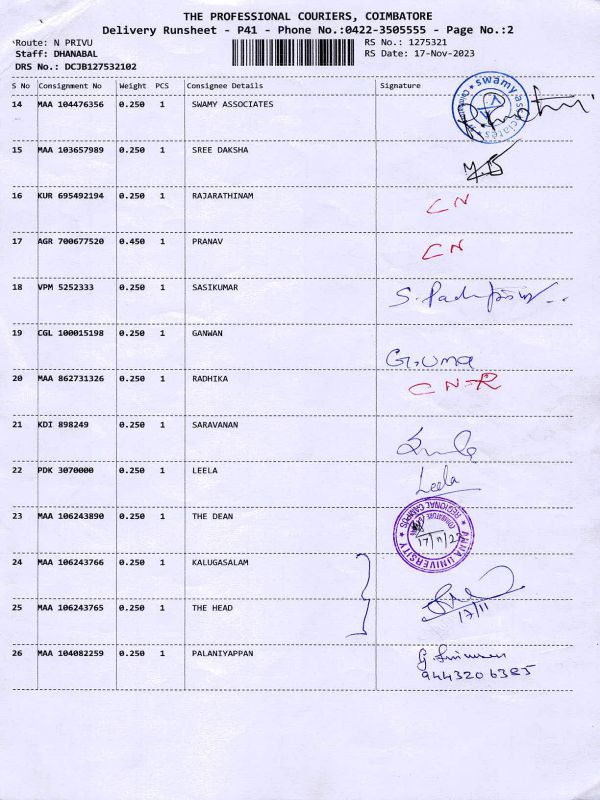 THE PROFESSIONAL COURIERS, COIMBATORE
Delivery Runsheet - P41 - Phone No.:0422-3505555 - Page No.:2
Route: N PRIVU
RS No.: 1275321
Staff: DHANABAL
RS Date: 17-Nov-2023
DRS No.: DCJB127532102
S No Consignment No Weight PCS Consignee Details Signature
14 MAA 104476356 0.250 1 SWAMY ASSOCIATES
swamy associates
15 MAA 103657989 0.250 1 SREE DAKSHA
16 KUR 695492194 0.250 1 RAJARATHINAM CN
17 AGR 700677520 0.450 1 PRANAV CN
18 VPM 5252333 0.250 1 SASIKUMAR
19 CGL 100015198 0.250 1 GANWAN
G.uma
20 MAA 862731326 0.250 1 RADHIKA CN-R
21 KDI 898249 0.250 1 SARAVANAN
22 PDK 3070000 0.250 1 LEELA Leela
23 MAA 106243890 0.250 1 THE DEAN
ANNA UNIVERSITY REGIONAL CAMPUS
24 MAA 106243766 0.250 1 KALUGASALAM
25 MAA 106243765 0.250 1 THE HEAD 17/11
26 MAA 104082259 0.250 1 PALANIYAPPAN
9443206385